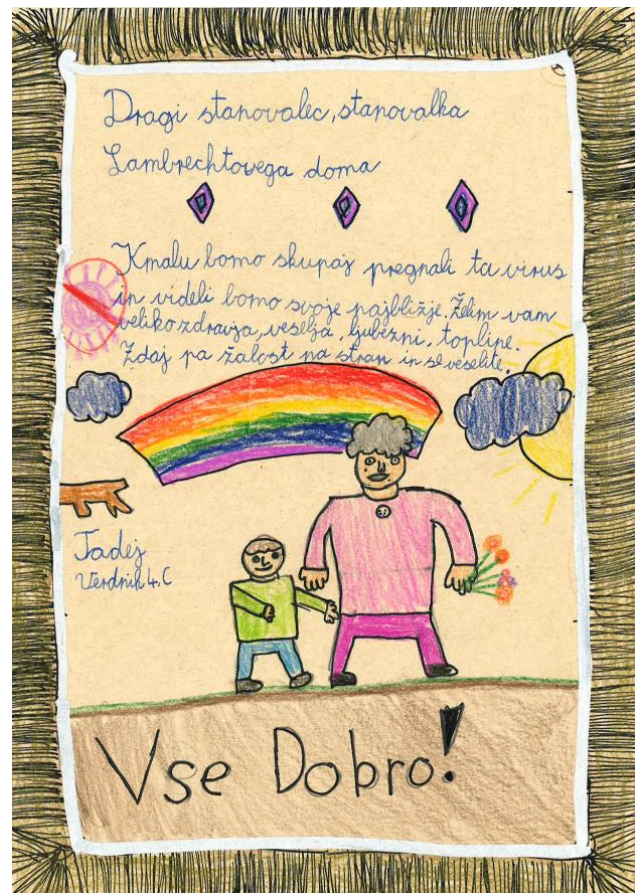 Dragi stanovalec, stanovalka
Lambrechtovega doma
Kmalu bomo skupaj pregnali ta virus
in videli bomo svoje najbližje. Želim vam
veliko zdravja, veselja, ljubezni, topline.
Zdaj pa žalost na stran in se veselite.
Tadej
Verdnik 4.C
Vse Dobro!